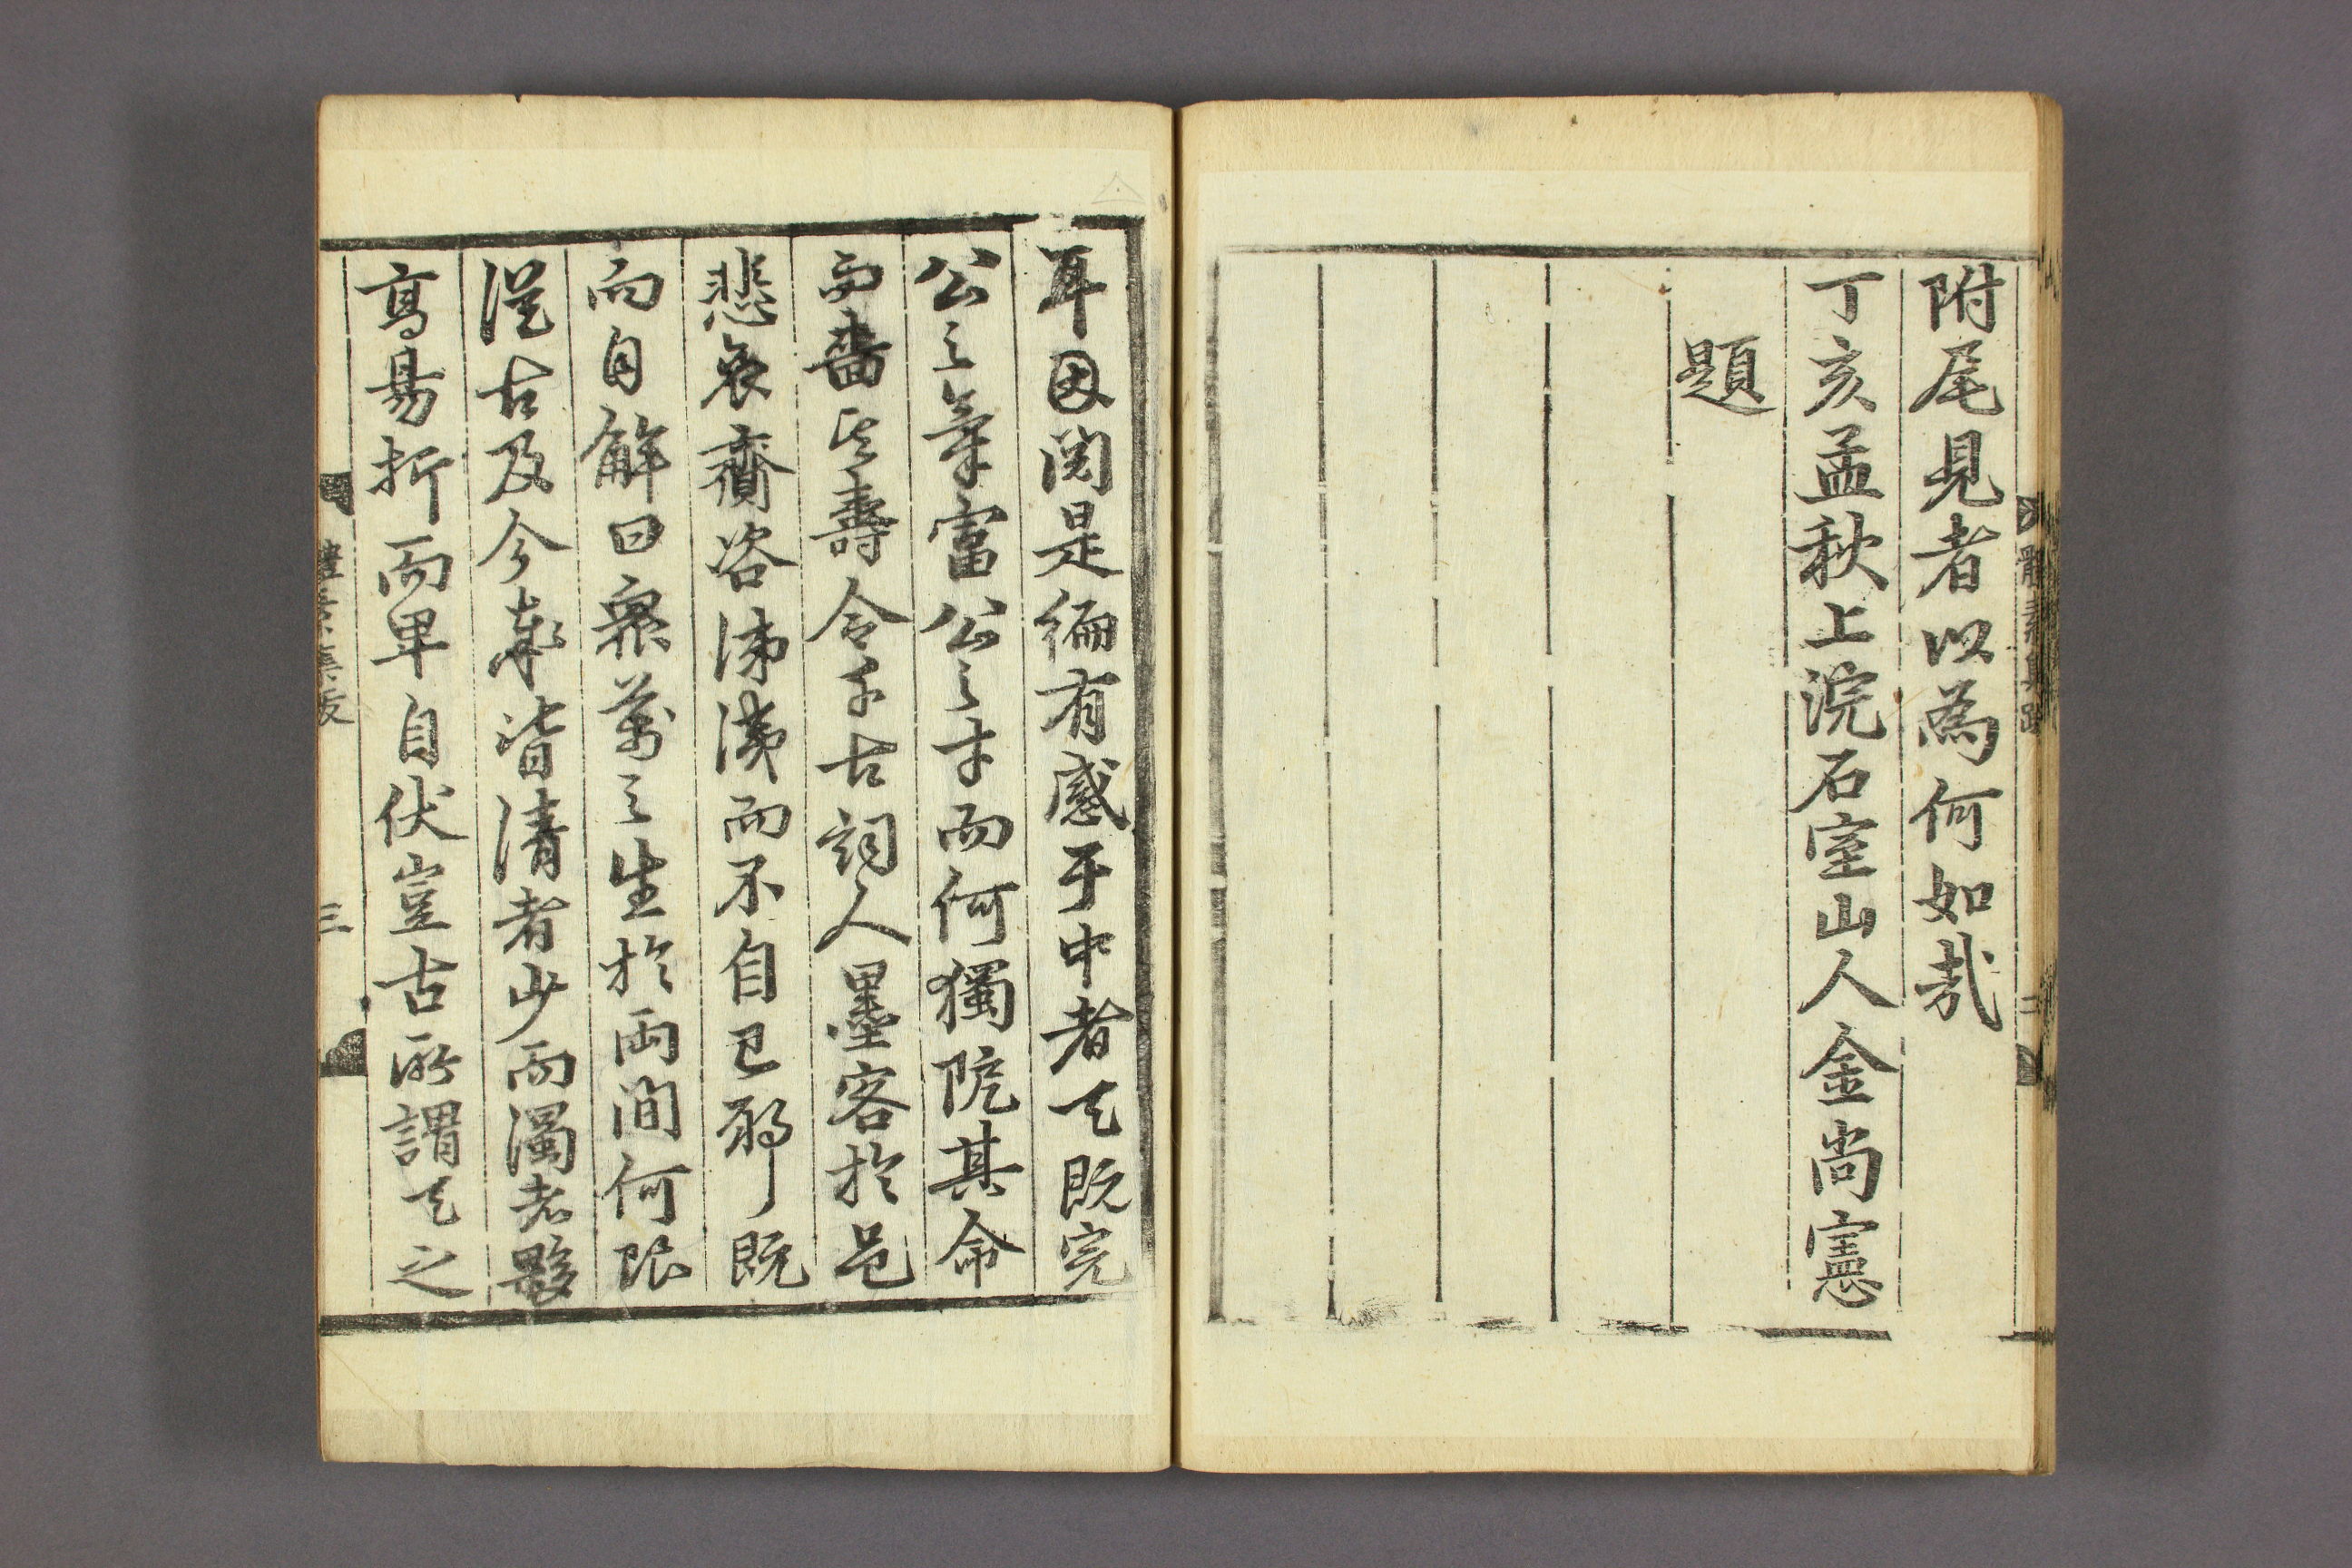 附尾見者以為何如哉
丁亥孟秋上浣石室山人金尚憲
題
耳因閱是編有感于中者天既完
公之氣富公之才而何獨阨其命
而嗇其壽令千古詞人墨客於邑
悲哀齎咨涕洟而不自已耶既
而自解曰衆萬之生於兩間何限
從古及今率皆清者少而濁者夥
高易折而卑自伏豈古所謂天之
三